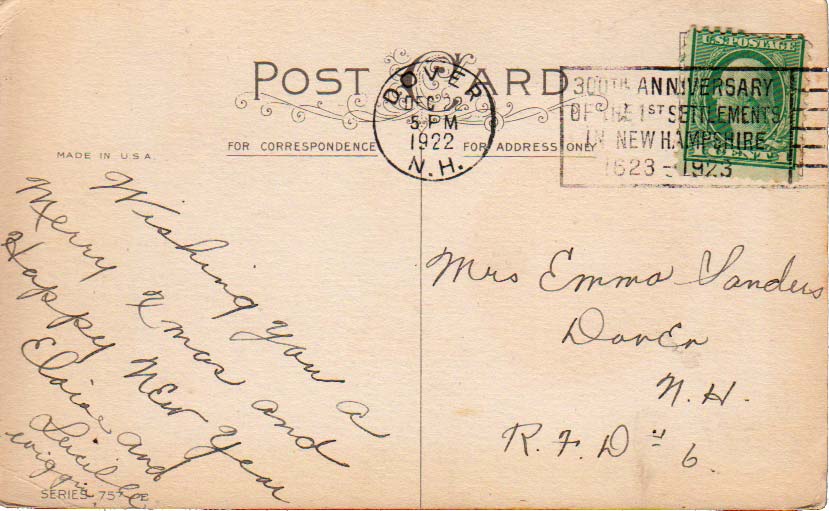 POST CARD
DOVER
DEC 22
5 PM
1922
N.H.
300TH ANNIVERSARY
OF THE 1ST SETTLEMENTS
IN NEW HAMPSHIRE
1623-1923
U.S. POSTAGE
1 CENT 1
MADE IN U.S.A.
FOR CORRESPONDENCE
FOR ADDRESS ONLY
Wishing you a
Merry Xmas and
Happy New Year
Eloise and
Lucille
Wiggin
SERIES 757 E
Mrs Emma Sanders
Dover
N.H.
R.F.D " 6.